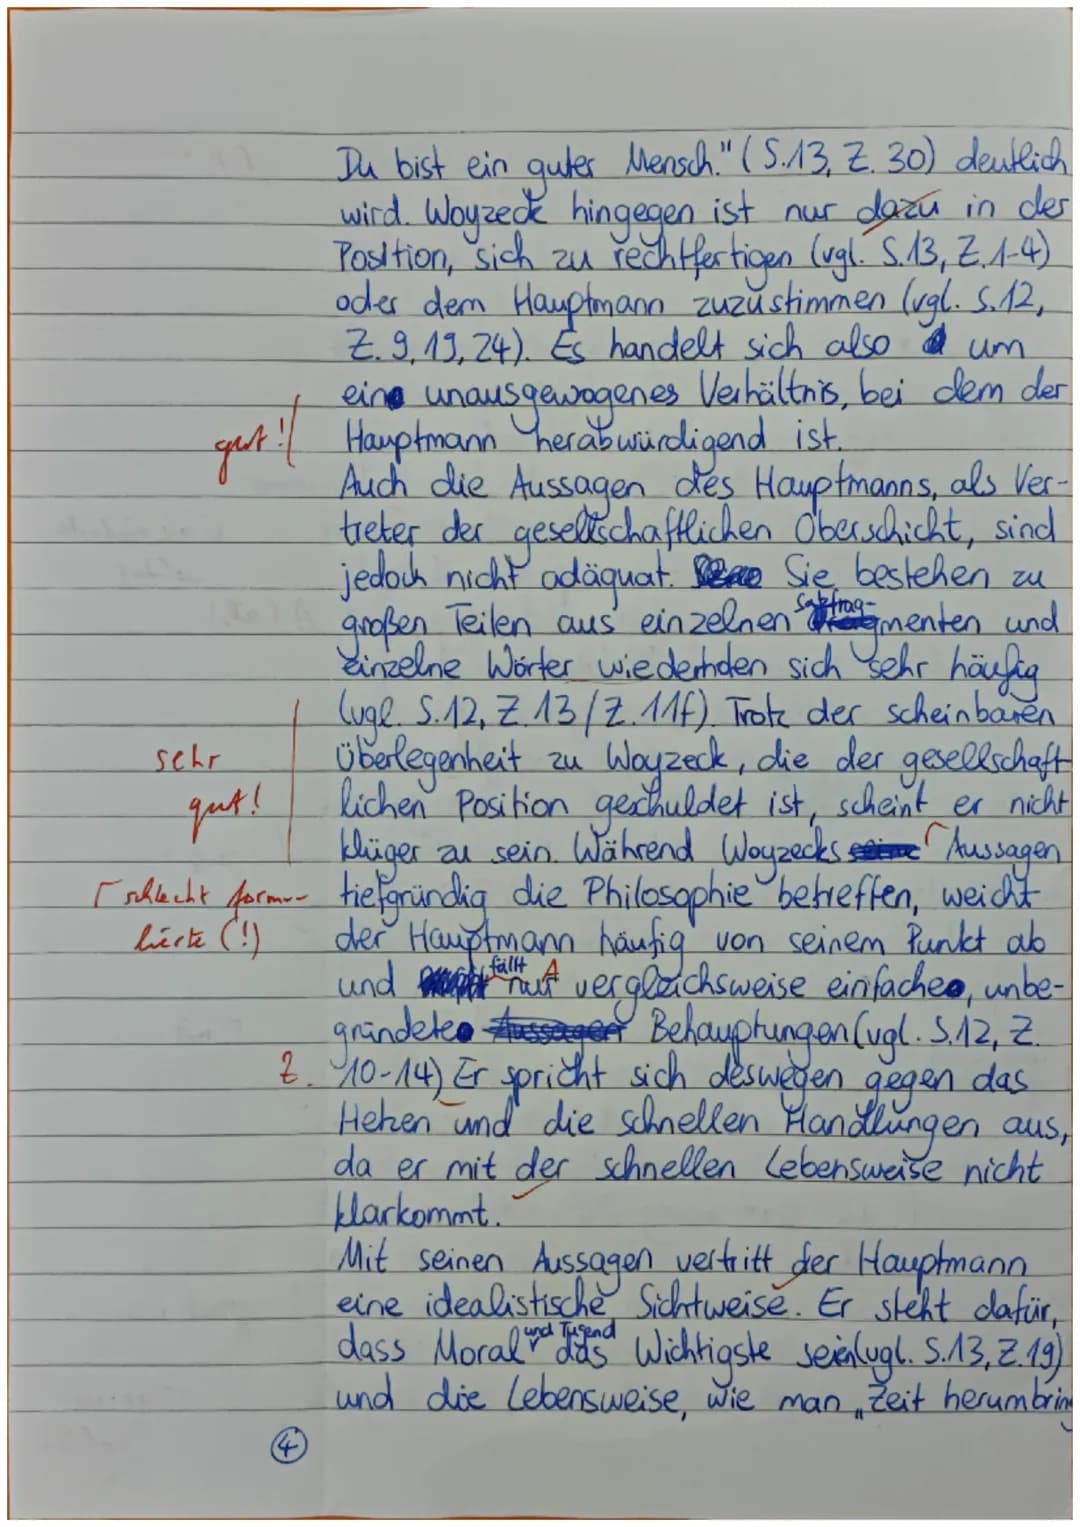 Du bist ein guter Mensch." (S.13, Z. 30) deutlich
wird. Woyzeck hingegen ist nur dazu in der
Position, sich zu rechtfertigen (vgl. S.13, Z.1-4)
oder dem Hauptmann zuzustimmen (vgl. S.12,
Z. 9, 19, 24). Es handelt sich also um
ein unausgewogenes Verhältnis, bei dem der
gut! Hauptmann herabwürdigend ist.
Auch die Aussagen des Hauptmanns, als Ver-
treter der gesellschaftlichen Oberschicht, sind
jedoch nicht adäquat. Sie bestehen zu
großen Teilen aus einzelnen Satzfrag-menten und
einzelne Wörter wiederhden sich sehr häufig
(vgl. S.12, Z.13/Z.11f). Trotz der scheinbaren
sehr Überlegenheit zu Woyzeck, die der gesellschaft
gut! lichen Position geschuldet ist, scheint er nicht
klüger zu sein. Während Woyzecks seine Aussagen
schlecht formu- tiefgründig die Philosophie betreffen, weicht
lierte (!) der Hauptmann häufig von seinem Punkt ab
und fällt nur A vergleichsweise einfache, unbe-
gründete Aussagen Behauptungen (vgl. S.12, Z.
Z. 10-14) Er spricht sich deswegen gegen das
Hetzen und die schnellen Handlungen aus,
da er mit der schnellen Lebensweise nicht
klarkommt.
Mit seinen Aussagen vertritt der Hauptmann
eine idealistische Sichtweise. Er steht dafür,
dass Moral und Tugend das Wichtigste seien (vgl. S.13, Z.19)
und die Lebensweise, wie man „Zeit herumbring
4